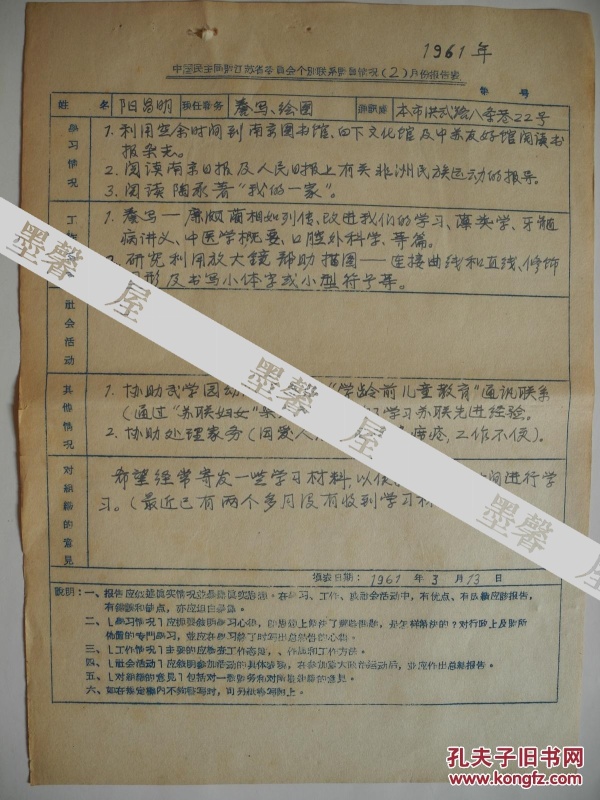 1961年
中国民主同盟江苏省委员会个别联系盟员情况(2)月份报告表
第 号
姓名 阳昌明 担任任务 誊写、绘图 本市洪武路八条巷22号
学习情况
1. 利用空余时间到南京图书馆、白下文化馆及中苏友好馆阅读书
报杂志。
2. 阅读南京日报及人民日报上有关非洲民族运动的报导。
3. 阅读陶承著“我的一家”。
1. 誊写—廉颇蔺相如列传、改进我们的学习、藻类学、牙髓
病讲义、中医学概要、口腔外科学、等篇。
2. 研究利用放大镜帮助描图—连接曲线和直线、修饰
形及书写小体字或小型符号等。
社会活动
其他情况
1. 协助武学园 “学龄前儿童教育”通讯联系
(通过“苏联妇女” 学习苏联先进经验。
2. 协助处理家务(因爱人 工作不便)。
对组织的意见
希望经常寄发一些学习材料,以便 间进行学
习。(最近已有两个多月没有收到学习材
填表日期: 1961 年 3 月 13 日
说明:一、报告应实事求是。在学习、工作、社会活动中,有优点、有成绩应该报告,
有错误和缺点,亦应坦白暴露。
二、[学习情况]应扼要叙明学习心得,即思想上解决了哪些问题,是怎样解决的?对行政上及盟所
布置的专门学习,并应在学习终了时写出总结性的心得。
三、[工作情况]主要的应检查工作态度、作风和工作方法。
四、[社会活动]应叙明参加活动的具体表现,在参加重大社会运动后,并应作出总结报告。
五、[对组织的意见]包括对一般盟务和对所属组织的意见。
六、如在规定栏内不够写时,可另纸书写附上。
墨馨屋
墨馨屋
墨馨屋
孔夫子旧书网
www.kongfz.com